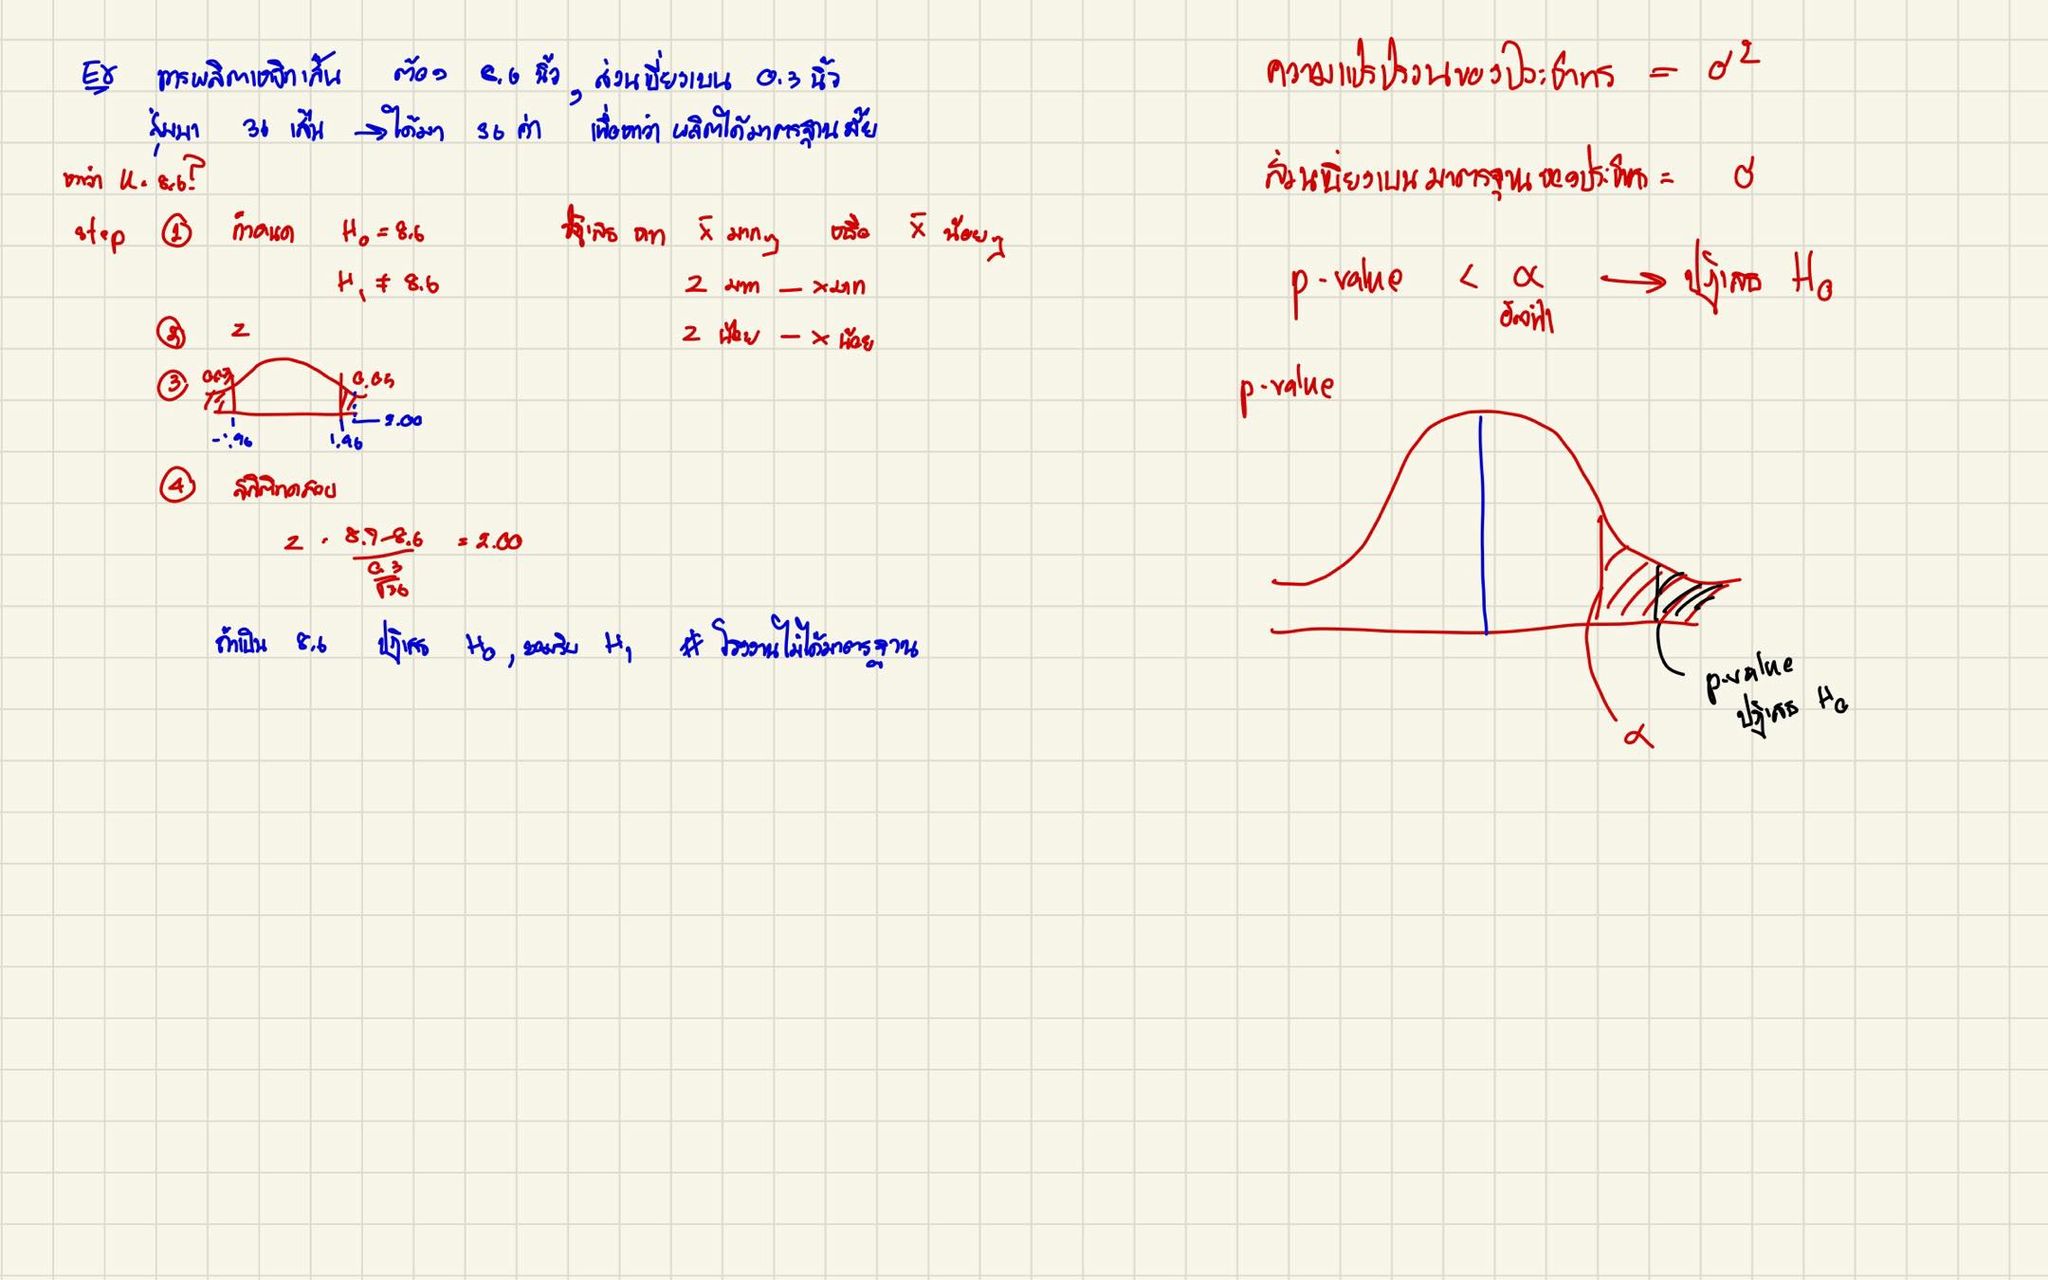 Ex การผลิตเหล็กเส้น ต้อง 8.6 นิ้ว, ส่วนเบี่ยงเบน 0.3 นิ้ว
สุ่มมา 36 เส้น → ได้มา 36 ค่า เพื่อหาว่า ผลิตได้มาตรฐานมั้ย
หาว่า μ = 8.6?
step ① กำหนด H₀ = 8.6 ปฏิเสธ หาก x̄ มากๆ หรือ x̄ น้อยๆ
H₁ ≠ 8.6 z มาก — x มาก
② z z น้อย — x น้อย
③ 0.05
2.00
-1.96 1.96
④ สถิติทดสอบ
z = 8.7-8.6 / (0.3/√36) = 2.00
ถ้าเป็น 8.6 ปฏิเสธ H₀, ยอมรับ H₁ # โรงงานไม่ได้มาตรฐาน
ความแปรปรวนของประชากร = σ²
ส่วนเบี่ยงเบนมาตรฐานของประชากร = σ
p-value < α → ปฏิเสธ H₀
อัลฟ่า
p-value
p-value
ปฏิเสธ H₀
α